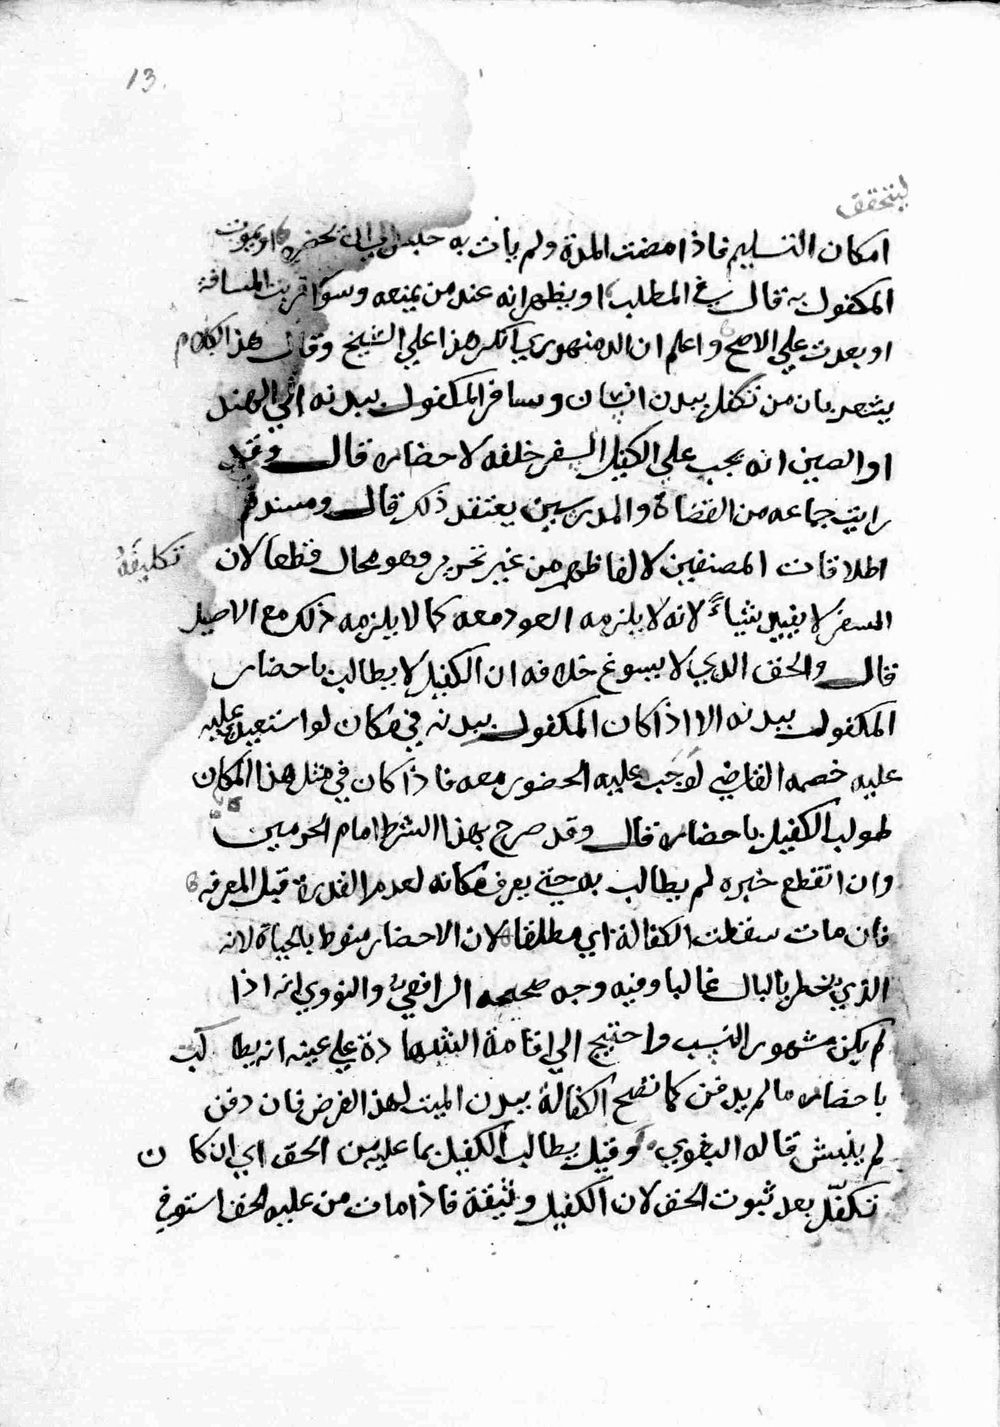 13.
ليتحقق
امكان التسليم فاذا مضت المدة ولم يات به حبس الي ان يحضره او يموت
المكفول به قال في المطلب او يظهر انه عند من يمنعه وسوا قربت المسافة
او بعدت علي الاصح واعلم ان الدمنهوري انكر هذا علي الشيخ وقال هذا الكلام
يشعر بان من تكفل ببدن انسان وسافر المكفول ببدنه الي الهند
او الصين انه يجب علي الكفيل السفر خلفه لاحضاره قال وقد
رايت جماعه من القضاة والمدرسين يعتقد ذلك قال ومستندهم
اطلاقات المصنفين لالفاظهم من غير تحرير وهو محال قطعا لان تكليفه
السفر لا يفيد شياءً لانه لا يلزمه العود معه كما لا يلزمه ذلك مع الاصيل
قال والحق الذي لا يسوغ خلافه ان الكفيل لا يطالب باحضار
المكفول ببدنه الا اذا كان المكفول ببدنه في مكان لو استعدي عليه
عليه خصمه القاضي لوجب عليه الحضور معه فاذا كان في مثل هذا المكان
طولب الكفيل باحضاره قال وقد صرح بهذا الشرط امام الحرمين
وان انقطع خبره لم يطالب به حتي يعرف مكانه لعدم القدرة قبل المعرفه
فان مات سقطت الكفالة اي مطلقا لان الاحضار منوط بالحياة لانه
الذي يخطر بالبال غالبا وفيه وجه صححه الرافعي والنووي انه اذا
لم يكن مشهور النسب واحتيج الي اقامة الشهادة علي عينه انه يطالب
باحضاره ما لم يدفن كما تصح الكفالة ببدن الميت لهذا الغرض فان دفن
لم ينبش قاله البغوي وقيل يطالب الكفيل بما عليه من الحق اي ان كان
تكفّل بعد ثبوت الحق لان الكفيل وثيقة فاذا مات من عليه الحق استوفي